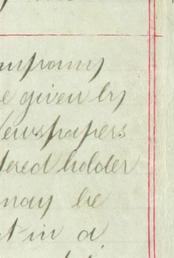 ompany
e given by
Newspapers
tered holder
may be
t in a